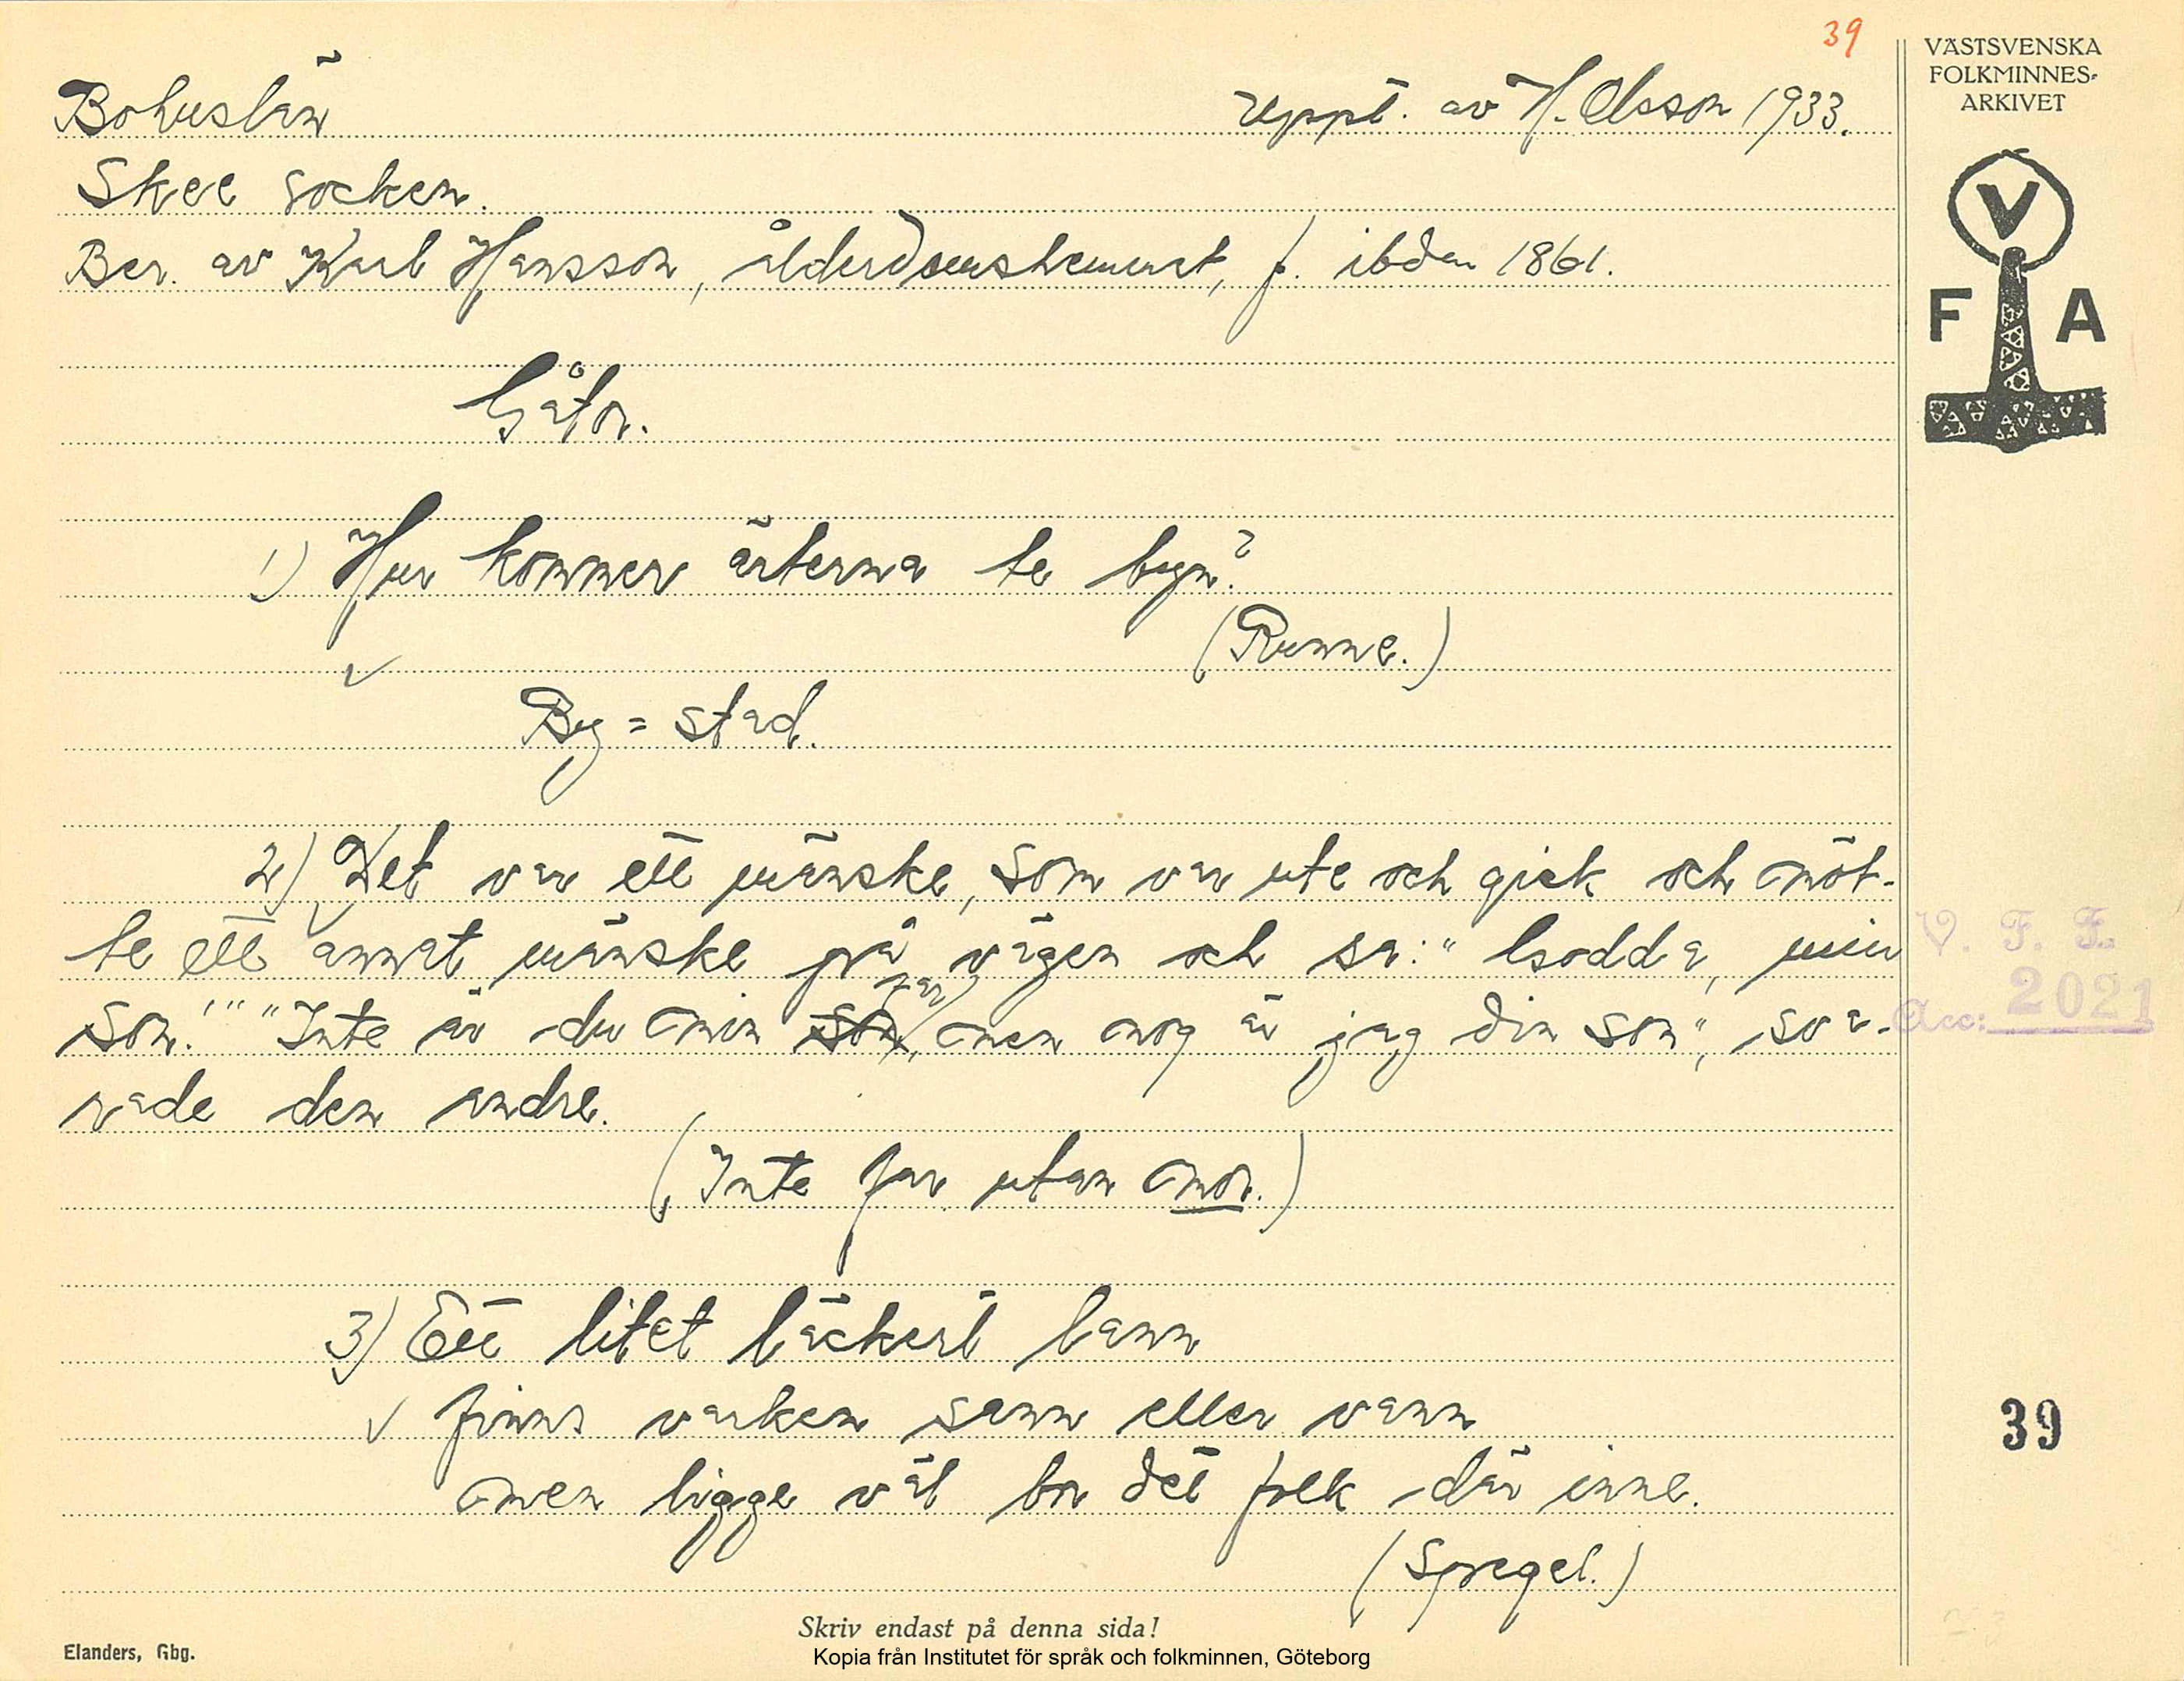 39
VÄSTSVENSKA
FOLKMINNES-
ARKIVET
V
F A
Bohuslän
uppt. av H. Olsson 1933.
Skee socken.
Ber. av Karl Hansson, ålderdomshemmet, f. ibdm 1861.
Gåtor.
1) Hur kommer ärterna te byn?
(Runne.)
By = stad.
2) Det var ett mänske, som var ute och gick och möt-
te ett annat mänske på vägen och sa: "Godda, min
son!" "Inte är du min son, far, men nog är jag din son", sva-
rade den andre.
(Inte far utan mor.)
3) Ett litet läckert lann
finns varken sann eller vann
men ligge väl bor det folk där inne.
(Spegel.)
V. F. F.
Acc: 2021
39
Skriv endast på denna sida!
Elanders, Gbg.
Kopia från Institutet för språk och folkminnen, Göteborg